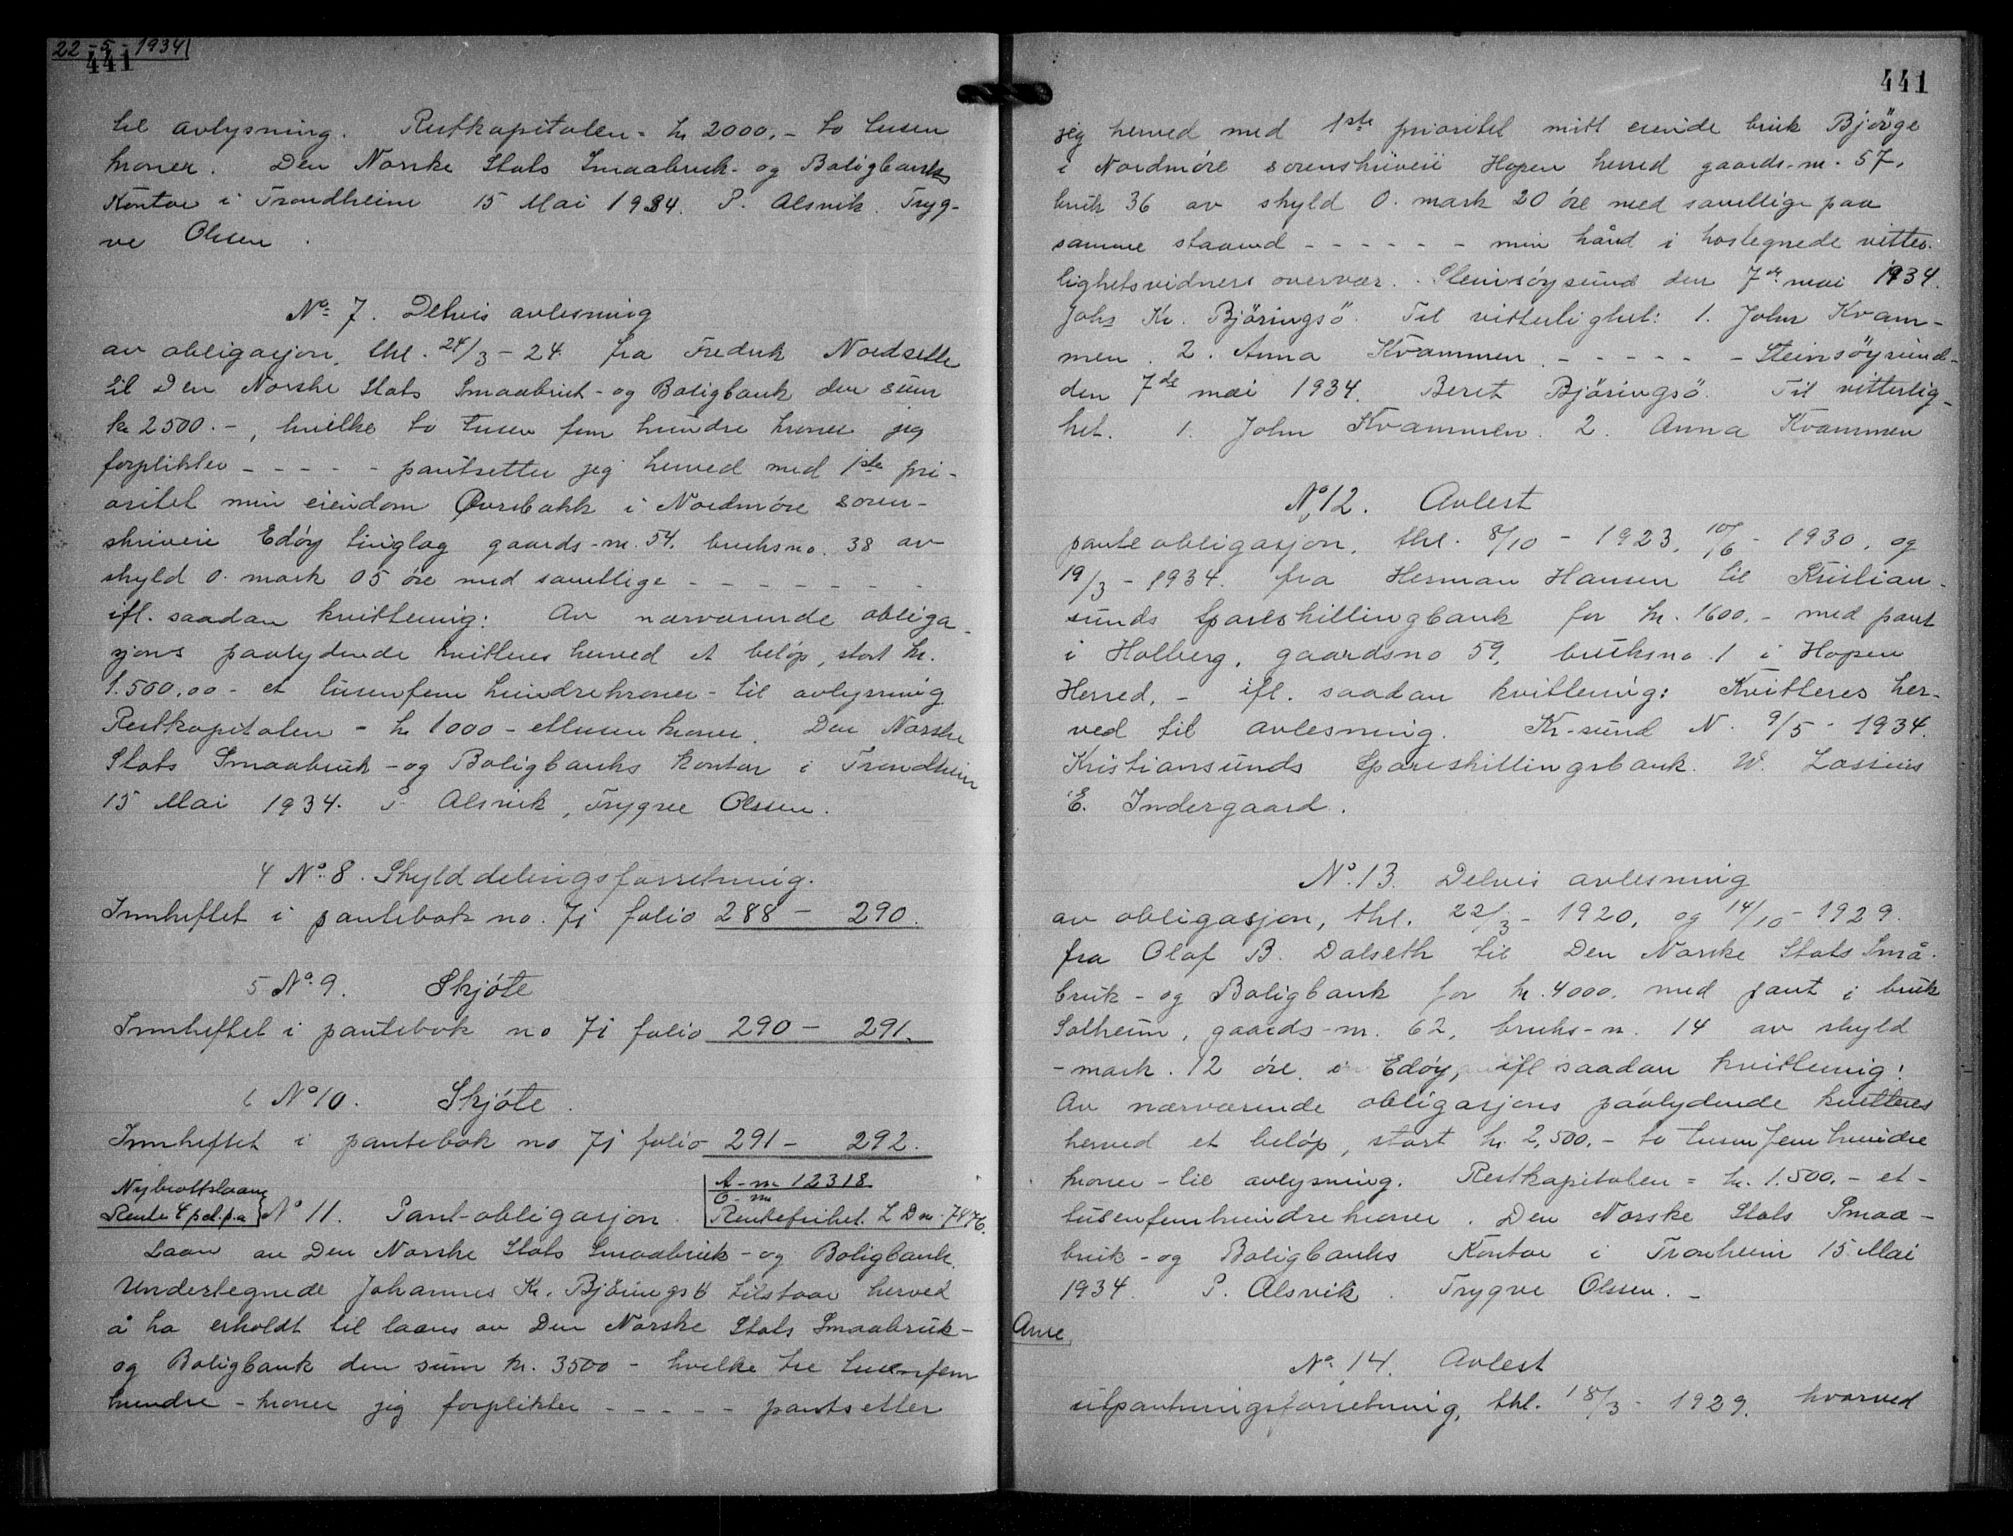 22-5-1934
441
til avlysning. Restkapitalen = kr 2000,- to tusen
kroner. Den Norske Stats Smaabruk- og Boligbanks
Kontor i Trondheim 15 Mai 1934. P. Alsvik. Tryg-
ve Olssen.
No. 7. Delvis avlesning
av obligasjon, thl. 24/3-24 fra Fredrik Nordsette
til Den Norske Stats Smaabruk- og Boligbank den sum
kr 2500.-, hvilke to tusen fem hundre kroner jeg
forplikter - - - - - pantsetter jeg herved med 1ste pri-
oritet min eiendom Øvrebakk i Nordmøre soren-
skriveri Edøy tinglag gaards-nr. 54, bruksno. 38 av
skyld 0. mark 05 øre med samtlige - - - - - - -
ifl. saadan kvittering: Av nærværende obliga-
sjons paalydende kvitteres herved et beløp, stort kr.
1.500,00 - et tusenfem hundrekroner - til avlysning
Restkapitalen - kr 1000 - ettusen kroner. Den Norske
Stats Smaabruk- og Boligbanks kontor i Trondheim
15 Mai 1934. P Alsvik, Trygve Olssen.
4 No. 8. Skylddelingsforretning.
Innheftet i pantebok no. 7j folio 288 - 290.
5 No. 9. Skjøte
Innheftet i pantebok no 7j folio 290 - 291.
6 No 10. Skjøte.
Innheftet i pantebok no 7j folio 291 - 292.
Nybrottslaan
Rente 4 pct. p.a } No 11. Pant-obligasjon. A-nr 12318
O-nr
Rentefrihet. L D nr. 7476.
Laan av Den Norske Stats Smaabruk- og Boligbank.
Undertegnede Johannes Kr. Björingsö tilstaar herved
å ha erholdt til laans av Den Norske Stats Smaabruk-
og Boligbank den sum kr. 3500 - hvilke tre tusenfem
hundre - kroner jeg forplikter - - - - - pantsetter
441
jeg herved med 1ste prioritet mitt eiende bruk Bjövge
i Nordmøre sorenskriveri Hopen herred gaards-nr. 57,
bruk 36 av skyld 0. mark 20 øre med samtlige paa
samme staaend - - - - - - min hånd i hostegnede vitter-
lighetsvidners overvær. Steinsöysund den 7de mai 1934.
Johs Kr. Björingsö. Til vitterlighet: 1. John Kvam-
men. 2. Anna Kvammen - - - - - - Steinsöysund-
den 7de mai 1934. Beret Björingsö. Til vitterlig-
het. 1. John Kvammen. 2. Anna Kvammen
No 12. Avlest
panteobligasjon, thl. 8/10 - 1923, 10/6 - 1930, og
19/3 - 1934. fra Herman Hansen til Kristian-
sunds Spareskillingbank for kr. 1600.- med pant
i Holberg, gaardsno 59, bruksno 1 i Hopen
Herred, - ifl. saadan kvittering: Kvitteres her-
ved til avlesning. Kr-sund N. 9/5 - 1934.
Kristiansunds Spareskillingsbank. W. Lossius
E. Indergaard.
No. 13. Delvis avlesning
av obligasjon, thl. 22/3 - 1920, og 14/10 - 1929.
fra Olaf B. Dalseth til Den Norske Stats Små-
bruk- og Boligbank for kr. 4000. med pant i bruk
Solheim, gaards-nr. 62, bruks-nr. 14 av skyld
- mark. 12 øre i Edøy, ifl saadan kvittering:
Av nærværende obligasjons påalydende kvitteres
herved et beløp, stort kr. 2,500.- to tusen fem hundre
kroner - til avlysning. Restkapitalen = kr. 1.500,- et-
tusenfemhundre kroner. Den Norske Stats Smaa-
bruk- og Boligbanks Kontor i Tronheim 15 Mai
1934. P. Alsvik. Trygve Olssen. -
Aure,
No. 14. Avlest
utpantningsforretning, thl. 18/3 - 1929. hvorved